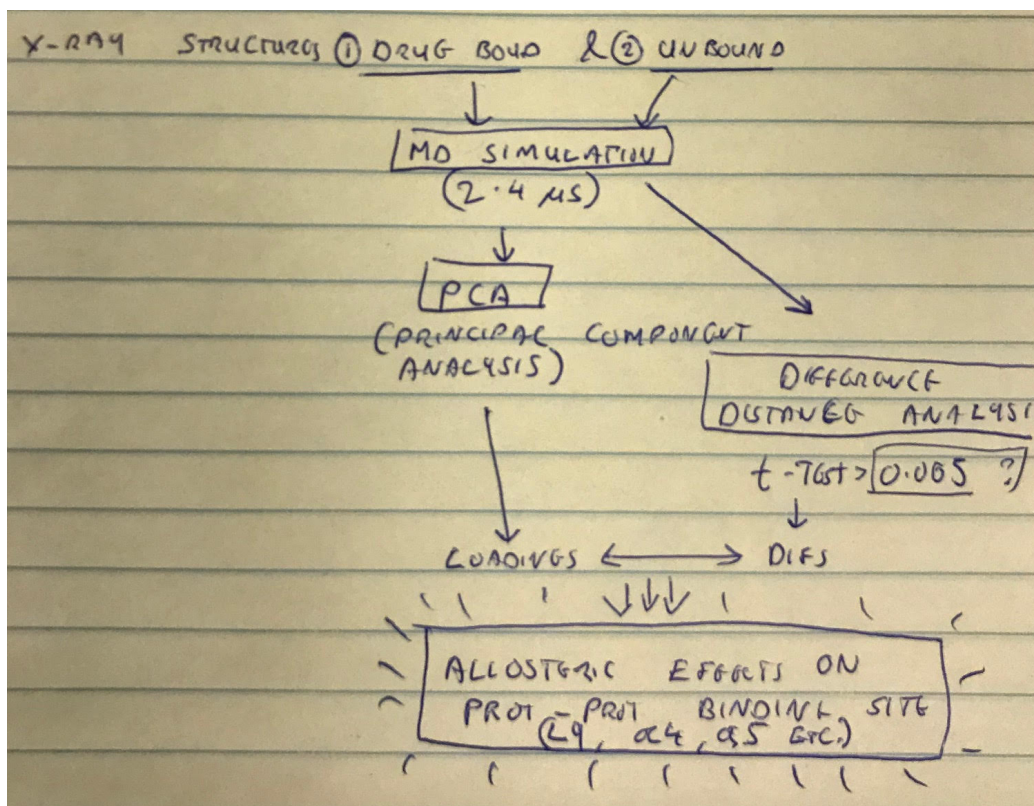 X-RAY STRUCTURES ① DRUG BOUD & ② UNBOUND
MD SIMULATION
(2.4 µs)
PCA
(PRINCIPAL COMPONENT
ANALYSIS)
DIFFERENCE
DISTANCE ANALYSI
t-TEST > 0.005 ?
LOADINGS ↔ DIFS
ALLOSTERIC EFFECTS ON
PROT-PROT BINDING SITE
(L9, α4, α5 ETC.)